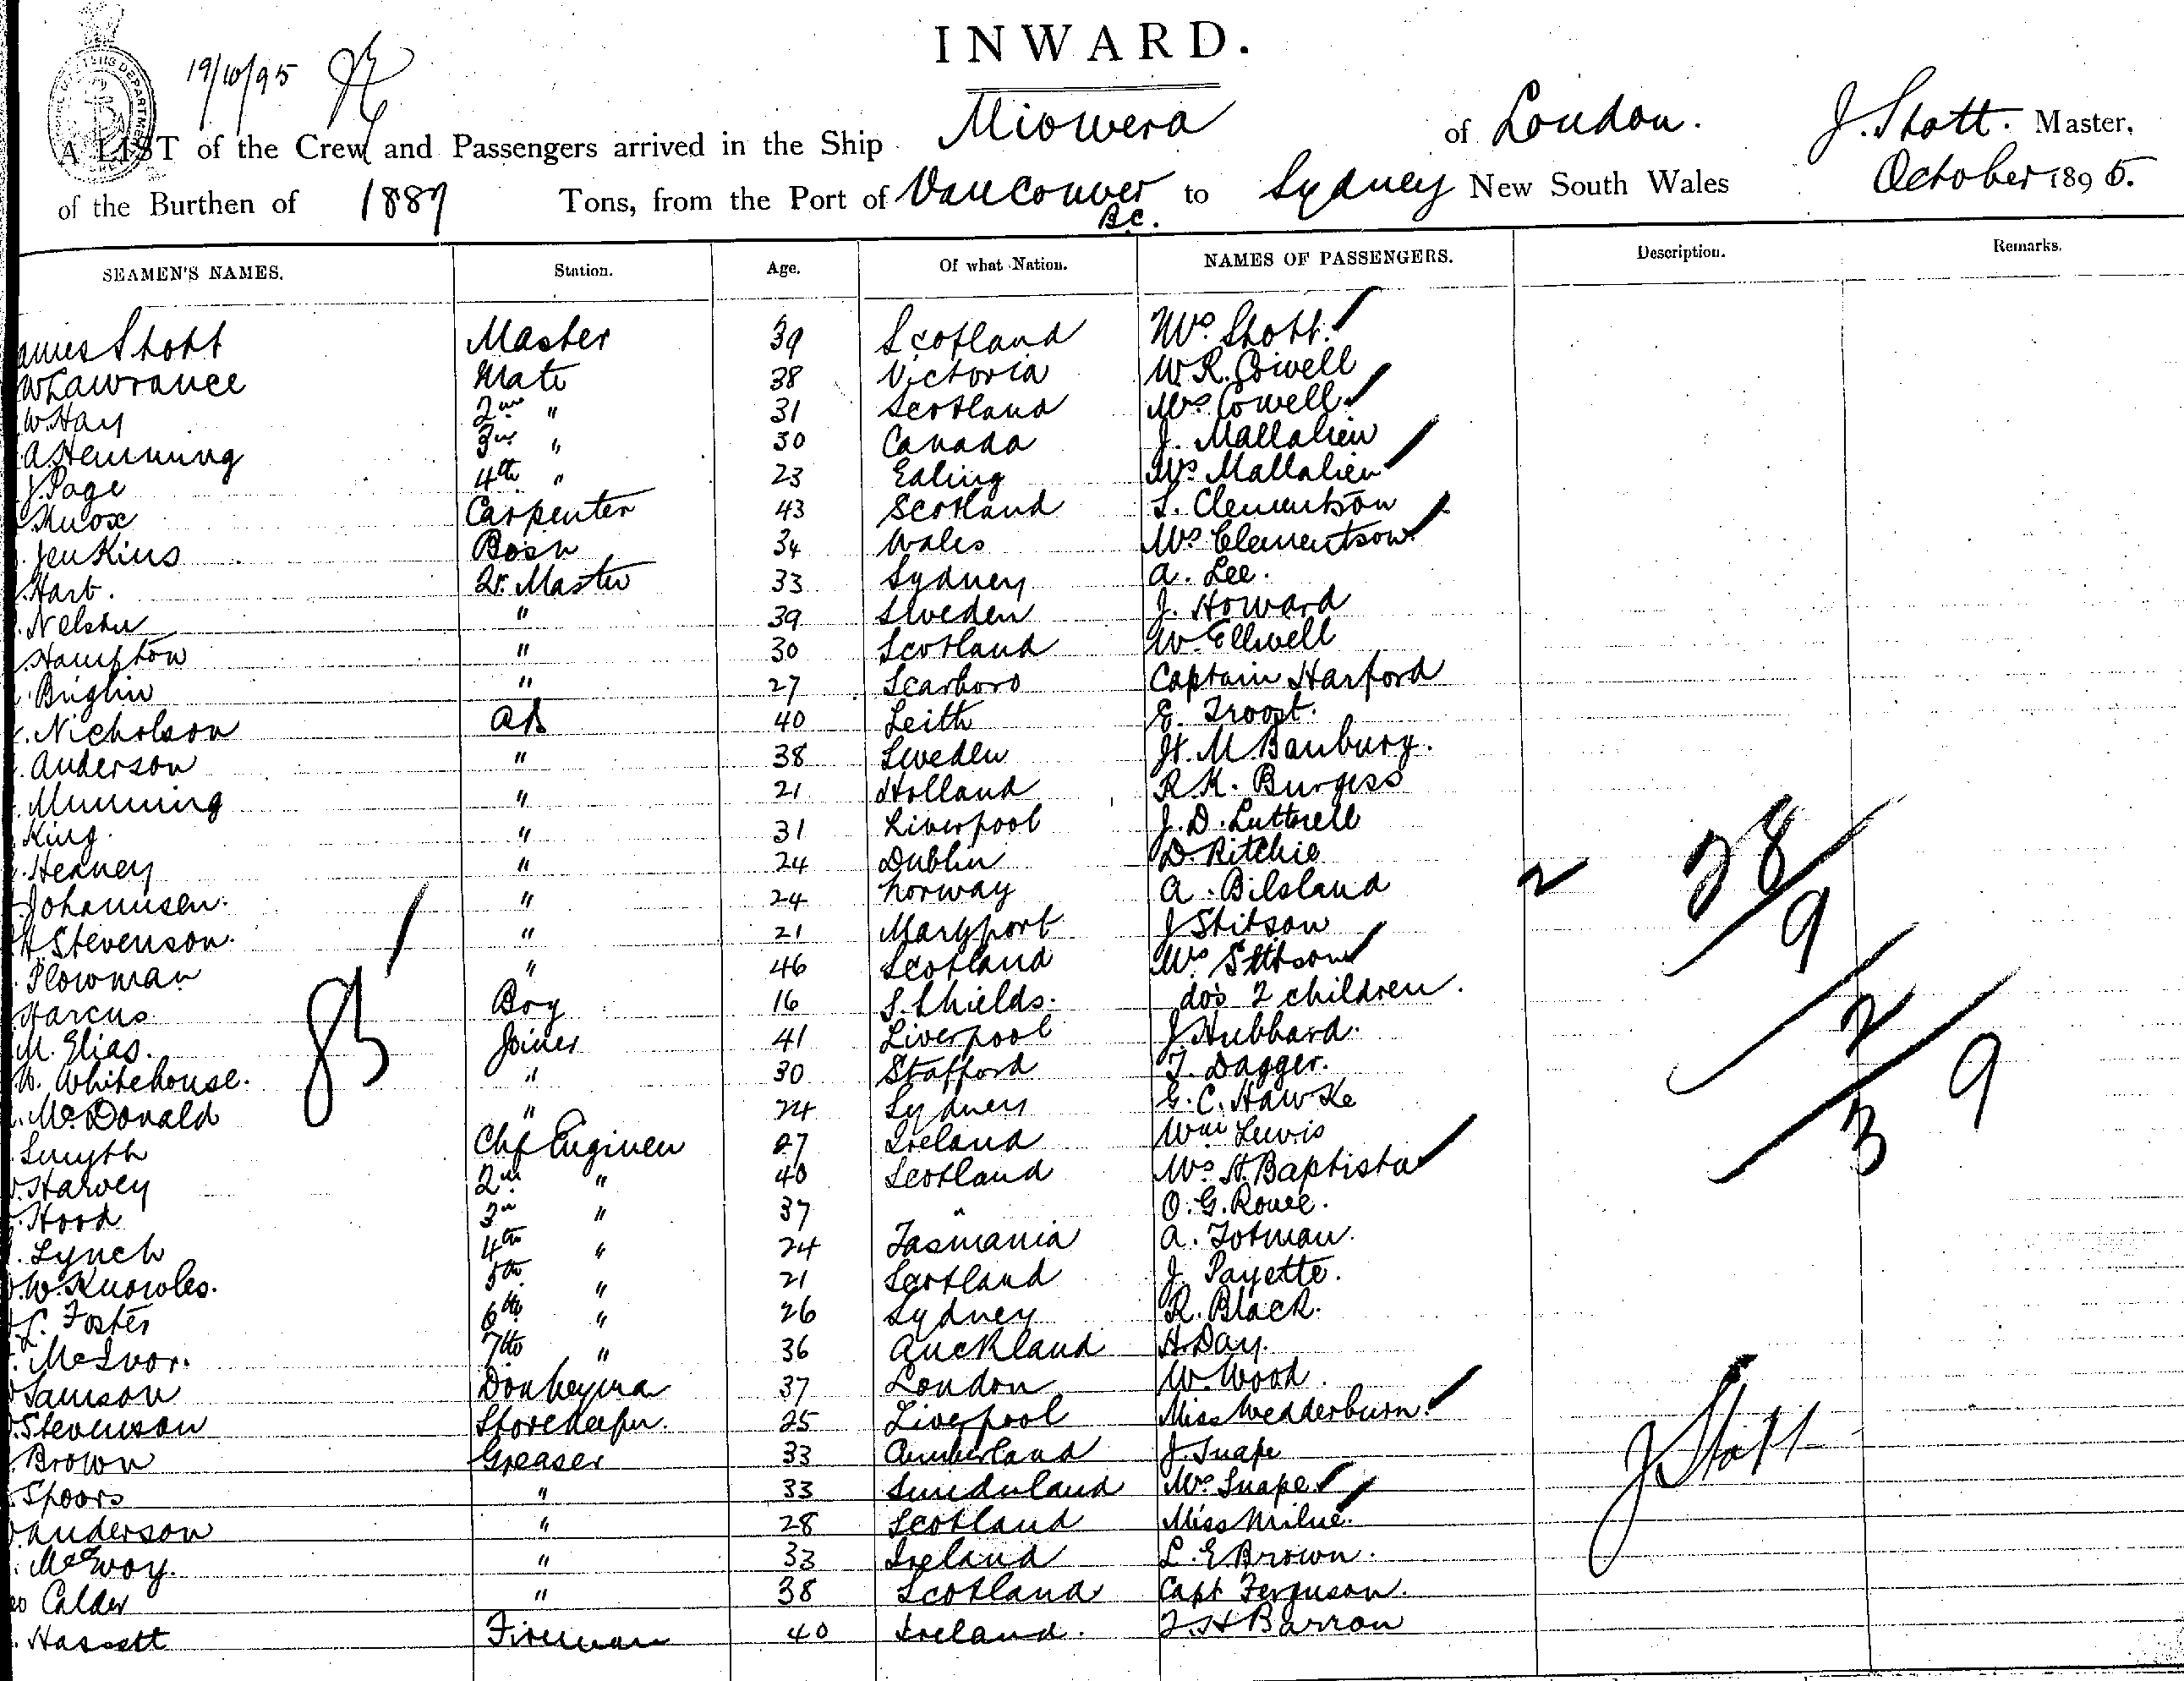 INWARD.
19/10/95
A LIST of the Crew and Passengers arrived in the Ship Miowera of London. J. Stott. Master,
of the Burthen of 1887 Tons, from the Port of Vancouver B.C. to Sydney New South Wales October 1895.
SEAMEN'S NAMES. Station. Age. Of what Nation. NAMES OF PASSENGERS. Description. Remarks.
ames Stott Master 39 Scotland Mrs. Stott.
W Lawrance Mate 38 Victoria W.R. Cowell
W. Hay 2nd " 31 Scotland Mrs. Cowell
A Hemming 3rd " 30 Canada J. Mallalieu
J. Page 4th " 23 Ealing Mrs Mallalieu
Knox Carpenter 43 Scotland S. Clementson
Jenkins Bosn 34 Wales Mrs Clementson
Hart. Qr. Master 33 Sydney A. Lee.
" 39 Sweden J. Howard
Hampton " 30 Scotland W. Ellwell
Briglin " 27 Scarboro Captain Harford
Nicholson AB 40 Leith E. Troost.
Anderson " 38 Sweden H. M. Banbury.
Munning " 21 Holland R.K. Burgess
King " 31 Liverpool J.D. Luttrell
Heaney " 24 Dublin D. Ritchie
Johannsen. " 24 Norway A. Bilsland
H Stevenson. " 21 Maryport J Stitson
Plowman " 46 Scotland Mrs Stitson
Harcus Boy 16 S. Shields. do's 2 children.
M. Elias. Joiner 41 Liverpool J Hubbard.
W. Whitehouse. " 30 Stafford T. Dagger.
McDonald " 24 Sydney E.C. Hawke
Smyth Chf Engineer 27 Ireland Wm Lewis
Harvey 2nd " 40 Scotland Mrs H. Baptista
Hood 3rd " 37 " O.G. Rowe.
Lynch 4th " 24 Tasmania A. Totman.
W. Knowles. 5th " 21 Scotland J. Payette.
L. Foster 6th " 26 Sydney R. Black.
McIvor. 7th " 36 Auckland H Day.
Samson Donkeyman 37 London W. Wood.
Stevenson Storekeeper. 25 Liverpool Miss Wedderburn.
Brown Greaser 33 Cumberland J. Snape
Spoors " 33 Sunderland Mrs Snape
Anderson " 28 Scotland Miss Milne.
McEvoy. " 33 Ireland L. E Brown.
eo Calder " 38 Scotland Capt Ferguson.
Hassett Fireman 40 Ireland. T. H Barron
85
2
28
9
2
9
3
J Stott